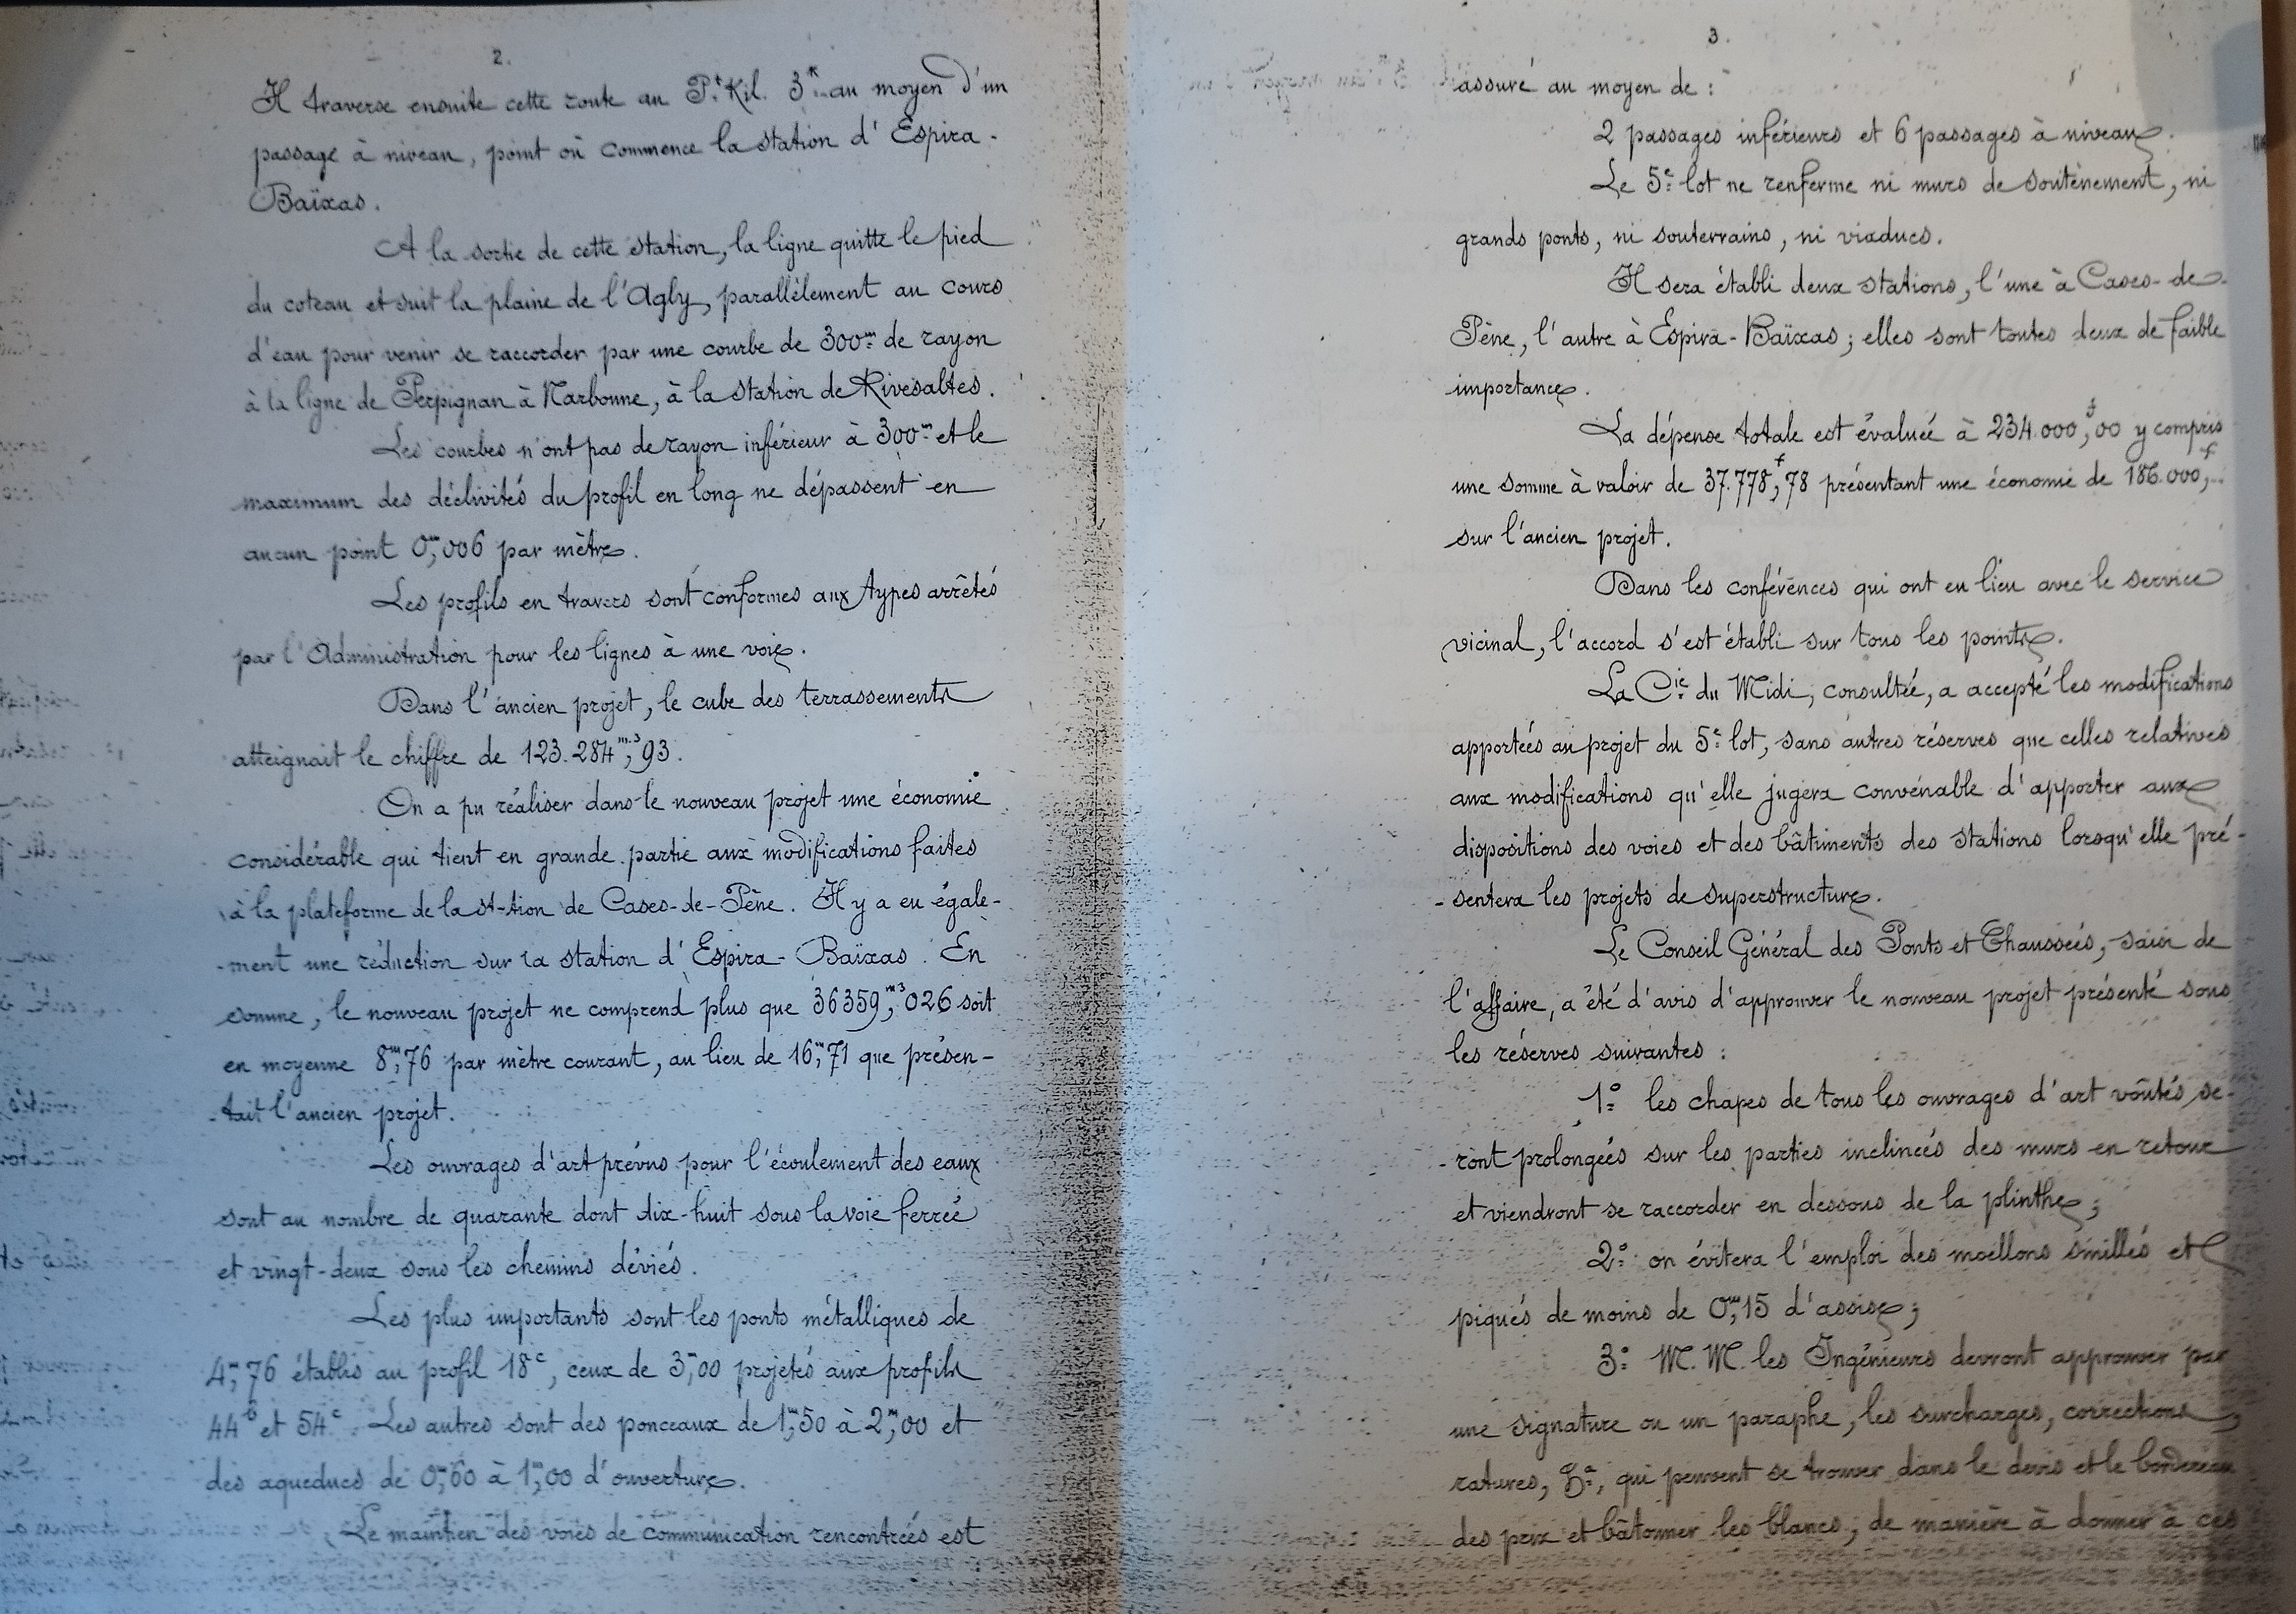 2.
Il traverse ensuite cette route au Pt Kil. 3k au moyen d'un
passage à niveau, point où commence la station d'Espira-
Baïxas.
A la sortie de cette station, la ligne quitte le pied
du coteau et suit la plaine de l'Agly, parallèlement au cours
d'eau pour venir se raccorder par une courbe de 300m de rayon
à la ligne de Perpignan à Narbonne, à la station de Rivesaltes.
Les courbes n'ont pas de rayon inférieur à 300m et le
maximum des déclivités du profil en long ne dépassent en
aucun point 0m,006 par mètre.
Les profils en travers sont conformes aux types arrêtés
par l'Administration pour les lignes à une voie.
Dans l'ancien projet, le cube des terrassements
atteignait le chiffre de 123.284m3,93.
On a pu réaliser dans le nouveau projet une économie
considérable qui tient en grande partie aux modifications faites
à la plateforme de la station de Cases-de-Pène. Il y a eu égale-
-ment une réduction sur la station d'Espira-Baïxas. En
somme, le nouveau projet ne comprend plus que 36359m3,026 soit
en moyenne 8m,76 par mètre courant, au lieu de 16m,71 que présen-
-tait l'ancien projet.
Les ouvrages d'art prévus pour l'écoulement des eaux
sont au nombre de quarante dont dix-huit sous la voie ferrée
et vingt-deux sous les chemins déviés.
Les plus importants sont les ponts métalliques de
4m,76 établis au profil 18c, ceux de 3m,00 projetés aux profils
44b et 54c. Les autres sont des ponceaux de 1m,50 à 2m,00 et
des aqueducs de 0m,60 à 1m,00 d'ouverture.
Le maintien des voies de communication rencontrées est
3.
assuré au moyen de :
2 passages inférieurs et 6 passages à niveau.
Le 5e lot ne renferme ni murs de soutènement, ni
grands ponts, ni souterrains, ni viaducs.
Il sera établi deux stations, l'une à Cases-de-
Pène, l'autre à Espira-Baïxas ; elles sont toutes deux de faible
importance.
La dépense totale est évaluée à 234.000f,00 y compris
une somme à valoir de 37.778f,78 présentant une économie de 186.000f,..
sur l'ancien projet.
Dans les conférences qui ont eu lieu avec le service
vicinal, l'accord s'est établi sur tous les points.
La Cie du Midi, consultée, a accepté les modifications
apportées au projet du 5e lot, sans autres réserves que celles relatives
aux modifications qu'elle jugera convenable d'apporter aux
dispositions des voies et des bâtiments des stations lorsqu'elle pré-
-sentera les projets de superstructure.
Le Conseil Général des Ponts et Chaussées, saisi de
l'affaire, a été d'avis d'approuver le nouveau projet présenté sous
les réserves suivantes :
1° les chapes de tous les ouvrages d'art voûtés se-
-ront prolongées sur les parties inclinées des murs en retour
et viendront se raccorder en dessous de la plinthe ;
2° on évitera l'emploi des moellons smillés et
piqués de moins de 0m,15 d'assise ;
3° M.M. les Ingénieurs devront approuver par
une signature ou un paraphe, les surcharges, corrections,
ratures, &a, qui peuvent se trouver dans le devis et le bordereau
des prix et bâtonner les blancs, de manière à donner à ces